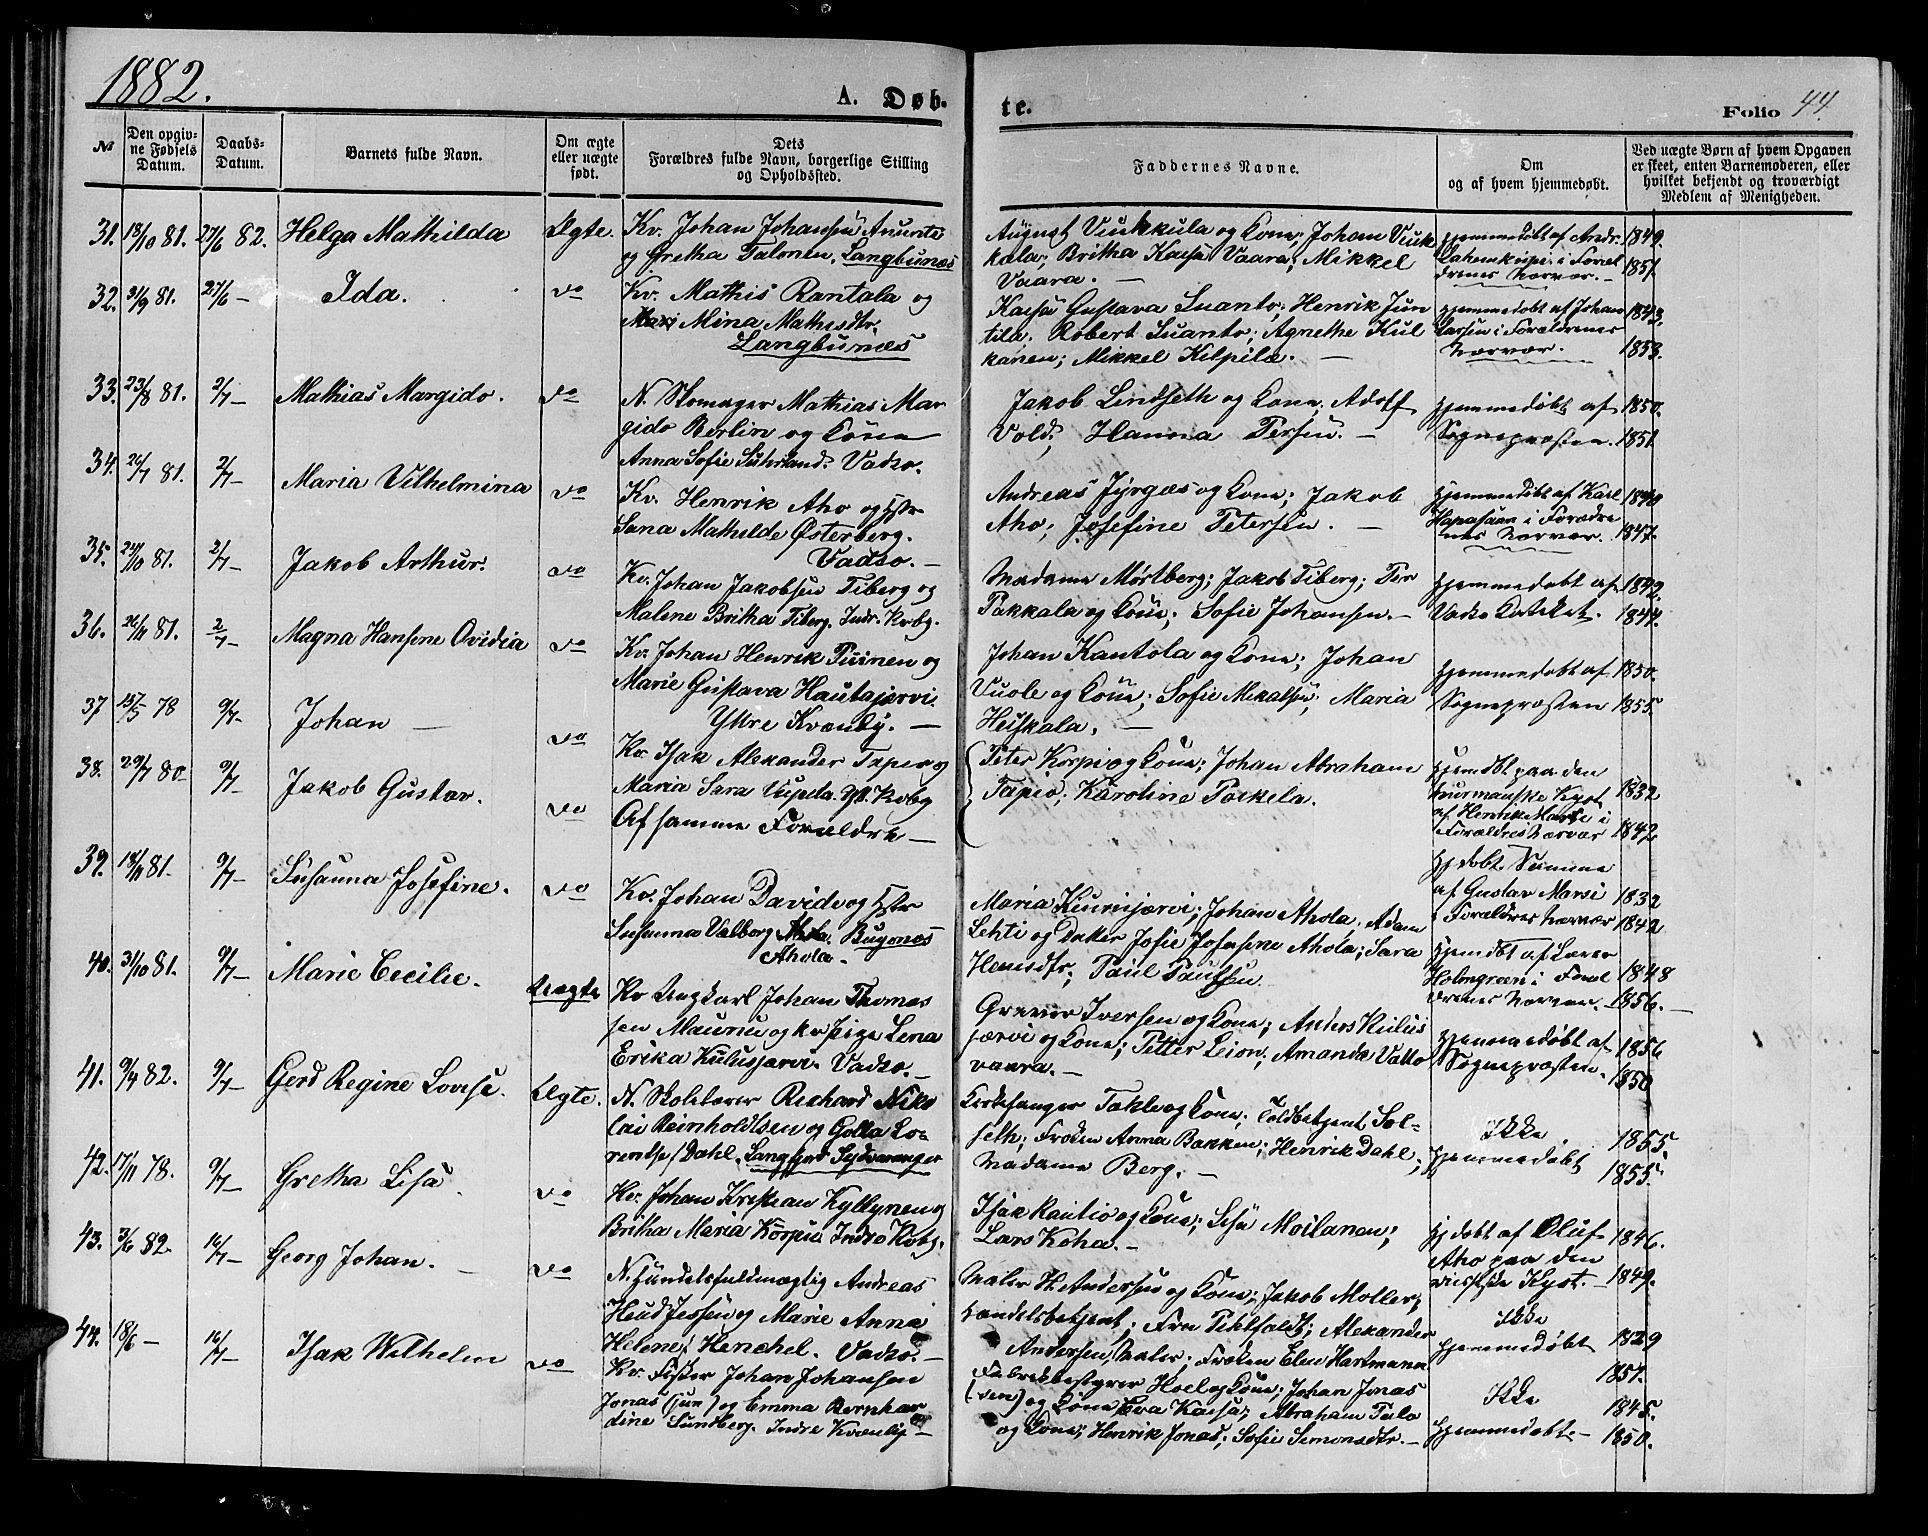 1882.
A. Døb-
te.
Folio 44.
№
Den opgiv-
ne Fødsels
Datum.
Daabs-
Datum.
Barnets fulde Navn.
Om ægte
eller uægte
født.
Dets
Forældres fulde Navn, borgerlige Stilling
og Opholdssted.
Faddernes Navne.
Om
og af hvem hjemmedøbt.
Ved uægte Børn af hvem Opgaven
er skeet, enten Barnemoderen, eller
hvilket bekjendt og troværdigt
Medlem af Menigheden.
31. 13/10 81. 27/6 82. Helga Mathilda Ægte.
Kv. Johan Johansen
og Gretha Talonen, Langbunæs
August Viinikkula og Kone; Johan Viiik
kala; Britha Kaisa Vaara; Mikkel
Vaara. —
Hjemmedøbt af Andr.
i Foræl
drenes Nærvær. —
1849.
1851.
32. 21/9 81. 27/6 — Ida. do
Kv. Mathis Rantala og
Mina Mathisdtr.
Langbunæs
Kaisa Gustava Suanto; Henrik Jun
tila; Robert Suanto; Agnethe Kul
kanen; Mikkel Kilpilæ. —
Hjemmedøbt af Johan
Larsen i Forældrenes
Nærvær.
1843.
1853.
33. 23/8 81. 2/7 — Mathias Margido. do
N. Skomager Mathias Mar
gido Berlin og Kone
Anna Sofie Suhrland. Vadsø.
Jakob Lindseth og Kone; Adolf
Vold; Hanna Persen. —
Hjemmedøbt af
Sognepræsten.
1850.
1851.
34. 26/7 81. 2/7 — Maria Vilhelmina do
Kv. Henrik Aho og Hstr
Sana Mathilde Østerberg.
Vadsø. —
Andreas Jyrgæs og Kone; Jakob
Aho; Josefine Petersen. —
Hjemmedøbt af Karl
Hapasaari i Forældre
nes Nærvær.
1840
1847.
35. 24/10 81. 2/7 — Jakob Arthur. do
Kv. Johan Jakobsen Tiberg og
Malene Britha Tiberg. Indr. Kvby.
Madame Mortberg; Jakob Tiberg; Per
Pakkala og Kone; Sofie Johansen. —
Hjemmedøbt af
Vadsø Kateket.
1842.
1847.
36. 26/11 81. 2/7 — Magna Hansine Ovidia do
Kv. Johan Henrik Puinen og
Marie Gustava Hautajærvi
Yttre Kvænby. —
Johan Kantola og Kone; Johan
Vuole og Kone; Sofie Mikalsen; Maria
Heiskala. —
Hjemmedøbt af
Sognepræsten
1850.
1855.
37 15/3 78 9/7 — Johan — do
Kv. Isak Alexander Tapio og
Maria Sara Yt. Kvby
Peter Korpi og Kone; Johan Abraham
Tapio; Karoline Porkela.
Hjemdbt paa den
murmanske Kyst
af Henrik i
Forældres Nærvær
1832
1842
38. 29/7 80 9/7 — Jakob Gustav. do
Af samme Forældre —
Hj døbt Summa
af Gustav Marsi
i Forældres Nærvær
1832
1842
39. 18/11 81. 9/7 — Susanna Josefine. do
Kv. Johan Davids og Hstr
Susanna Valborg Bugonæs
Ahola. —
Maria Kiurujærvi; Johan Ahola; Adam
Lehti og Josefine Ahola; Sara
Hansdtr; Paul Paulsen.
Hjemdøbt af Lærer
Holmgreen i Foræl
drenes Nærvær.
1848
1856. —
40. 31/10 81. 9/7 — Marie Cecilie. Uægte
Kv Ungkarl Johan Thomas
sen Maunu og kv Pige Lena
Erika Kulusjærvi. Vadsø. —
Graver Iversen og Kone; Anders Kulus
jærvi og Kone; Petter Leion; Amanda Valto
vaara. —
Hjemmedøbt af
Sognepræsten.
1856.
1850
41. 9/4 82. 9/7 — Gerd Regine Lovise. Ægte.
N. Skolelærer Richard Niko
lai Reinholdtsen og Golla Lo-
rentse Dahl. Langfjord Sydvaranger
Kirkesanger Takle og Kone; Toldbetjent Sol-
seth; Frøken Anna Bakken; Henrik Dahl;
Madame Berg. —
Ikke
Hjemmedøbt
1855.
1855.
42. 17/11 78. 9/7 — Gretha Lisa. do
Kv. Johan Kristian Kyllynen og
Britha Maria Korpin. Indre Kvby.
Isak Rautio og Kone; Lisa Moilanen;
Lars Koha. —
Hj døbt af Oluf
Aho paa den
russiske Kyst. —
1846.
1849.
43. 3/6 82. 16/7 — Georg Johan. — do
N. Handelsfuldmægtig Andreas
Jessen og Marie Anna
Helene Henchel. Vadsø. —
Maler H. Andersen og Kone; Jakob Moller;
Handelsbetjent; Fru Alexander
Andersen, Maler; Frøken Elen Hartmann
Ikke
Hjemmedøbt
1829
1851.
44. 18/6 — 16/7 — Isak Wilhelm do
Kv. Fisker Johan Johansen
Jonas (jun) og Emma Bernhar
dine Sundberg. Indre Kvænby —
Fabrikbestyrer Hoel og Kone; Johan Jonas
(sen) og Kone Eva Kaisa; Abraham Palo
og Kone; Henrik Jonas; Sofie Simonsdtr. —
Ikke
Hjemmedøbt —
1845.
1850.